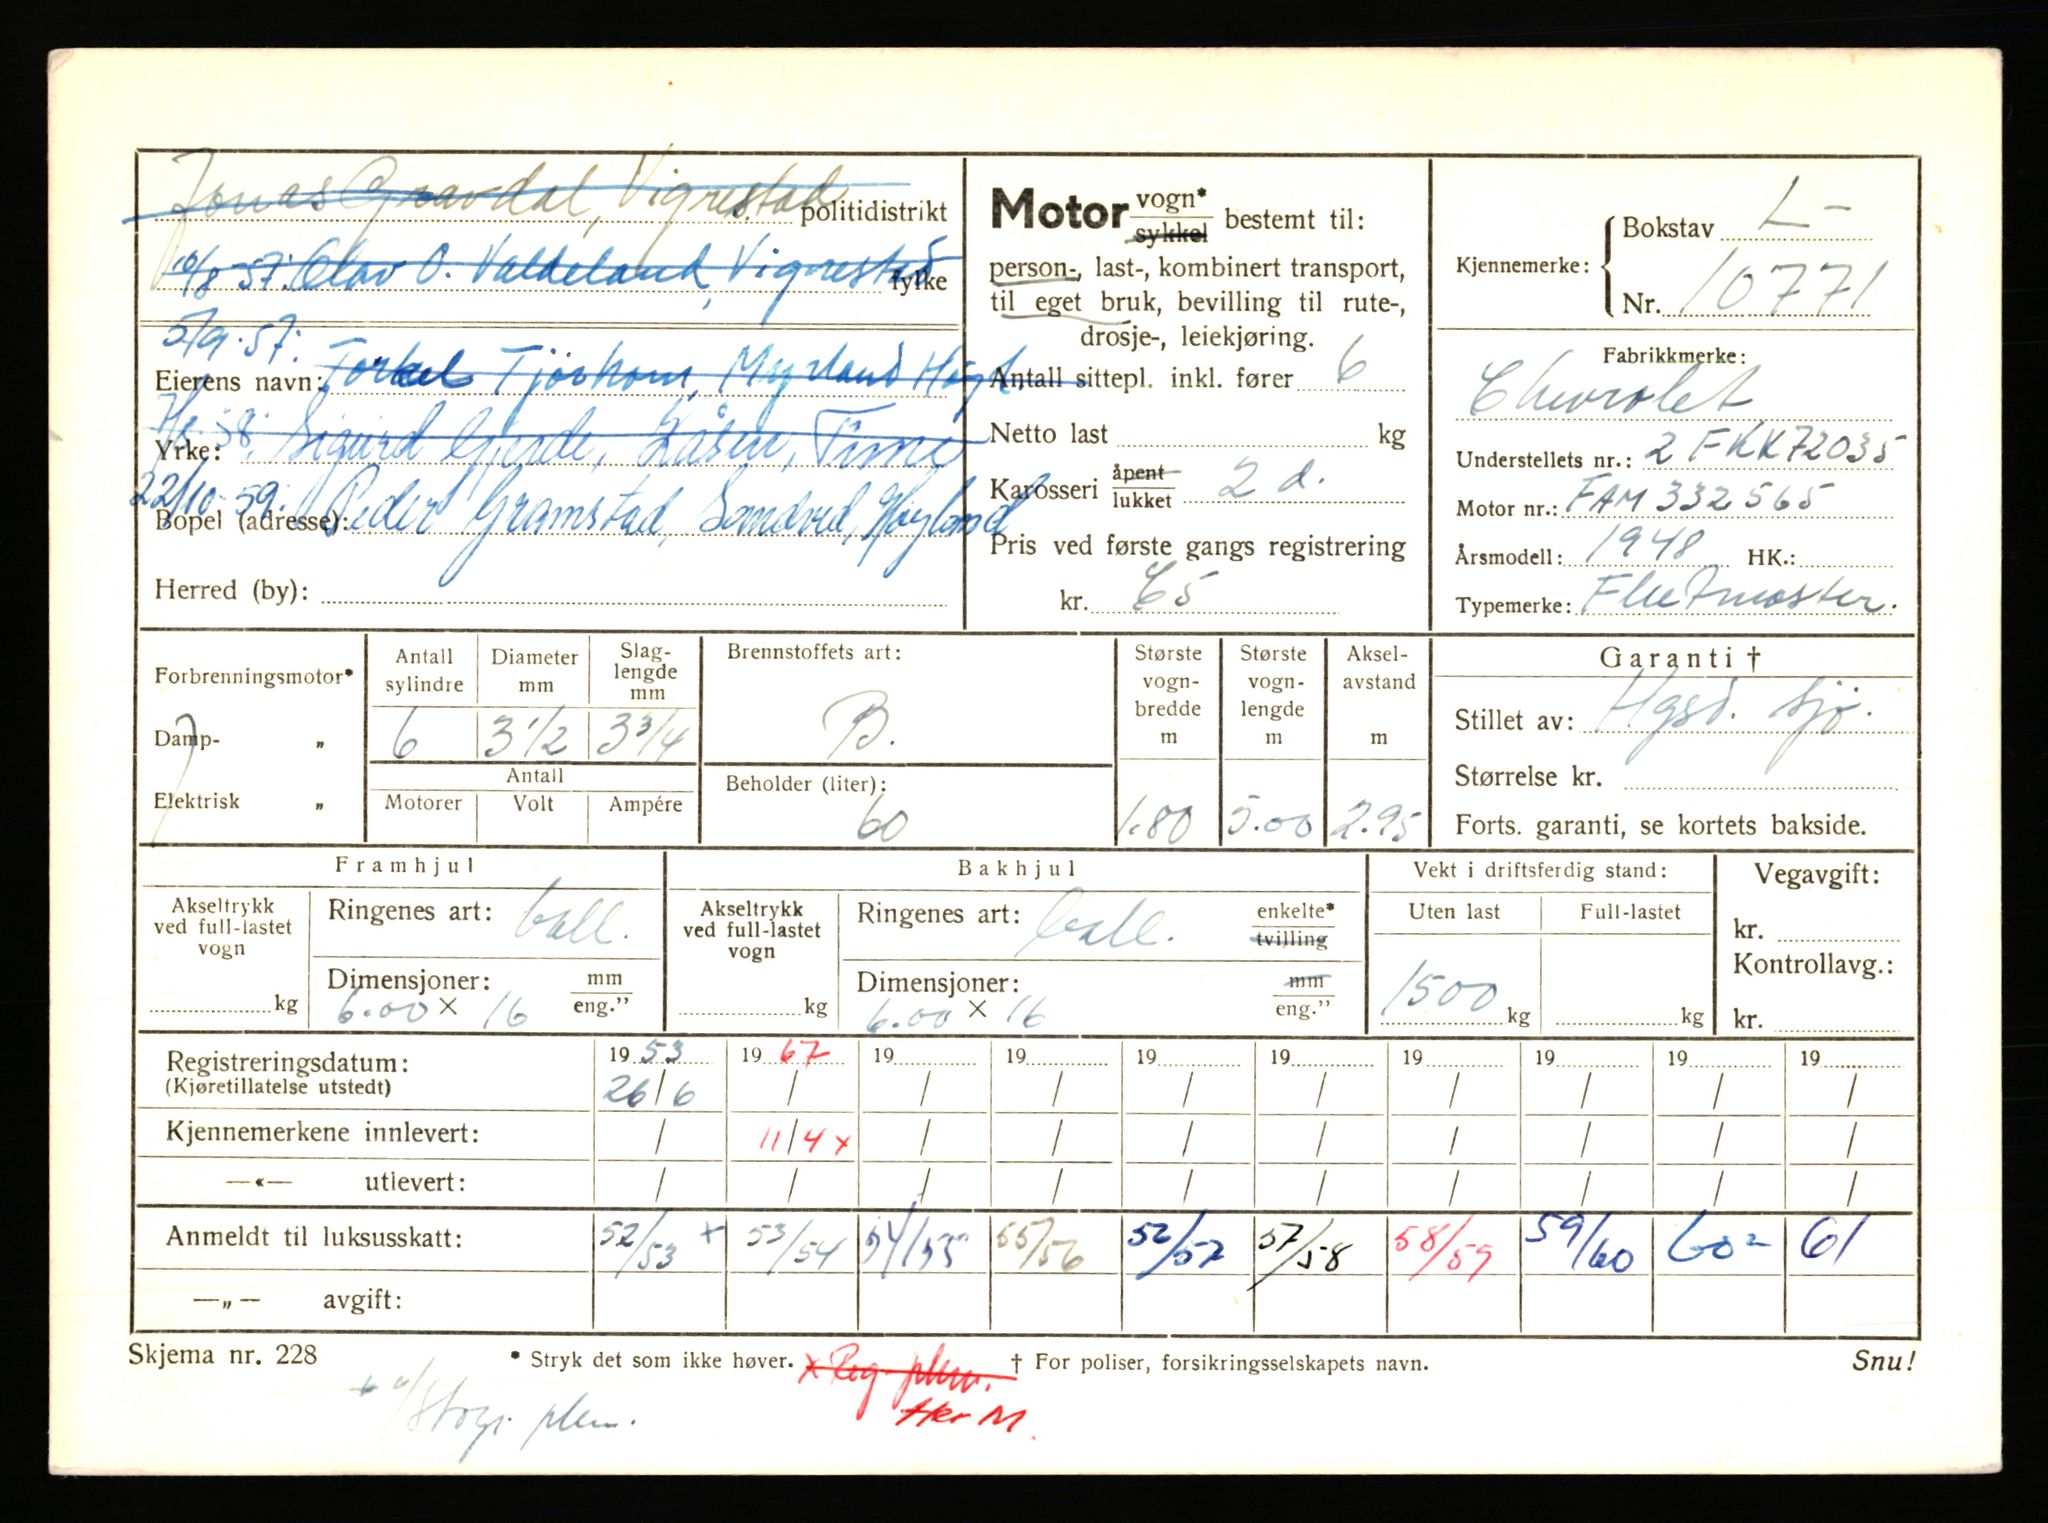 Jonas Gravdal, Vigrestad politidistrikt
10/8 57. Olav O. Valdeland, Vigrestad fylke
5/9.57.
Eierens navn: Torkel Tjörhom, Myrland
Yrke: Sigurd Gjerde, Time
22/10 59.
Bopel (adresse): Peder Gramstad, Somdved, Høyland
Herred (by):
Motor vogn* sykkel bestemt til:
person-, last-, kombinert transport,
til eget bruk, bevilling til rute-,
drosje-, leiekjøring.
Antall sittepl. inkl. fører 6
Netto last kg
Karosseri åpent lukket 2 d.
Pris ved første gangs registrering
kr. C5
Kjennemerke: Bokstav L-
Nr. 10771
Fabrikkmerke:
Chevrolet
Understellets nr.: 2 FKK72035
Motor nr.: FAM 332565
Årsmodell: 1948 HK.:
Typemerke: Fleetmaster.
Forbrenningsmotor*
Damp- „
Elektrisk „
Antall sylindre 6
Diameter mm 3 1/2
Slag-lengde mm 3 3/4
Antall
Motorer Volt Ampére
Brennstoffets art:
B.
Beholder (liter):
60
Største vogn-bredde m 1.80
Største vogn-lengde m 5.00
Aksel-avstand m 2.95
Garanti †
Stillet av: Hgsd. Sjø.
Størrelse kr.
Forts. garanti, se kortets bakside.
Framhjul
Akseltrykk ved full-lastet vogn kg
Ringenes art: ball.
Dimensjoner: mm eng."
6.00 × 16
Bakhjul
Akseltrykk ved full-lastet vogn kg
Ringenes art: ball. enkelte* tvilling
Dimensjoner: mm eng."
6.00 × 16
Vekt i driftsferdig stand:
Uten last Full-lastet
1500 kg kg
Vegavgift:
kr.
Kontrollavg.:
kr.
Registreringsdatum: 19 53 19 67 19 19 19 19 19 19 19 19
(Kjøretillatelse utstedt) 26/6 / / / / / / / / /
Kjennemerkene innlevert: / 11/4 x / / / / / / / /
—«— utlevert: / / / / / / / / / /
Anmeldt til luksusskatt: 52/53 + 53/54 54/55 55/56 52/57 57/58 58/59 59/60 60² 61
—„— avgift:
Skjema nr. 228 * Stryk det som ikke høver. x Reg. plem. † For poliser, forsikringsselskapets navn. Snu!
plem.
Her M.